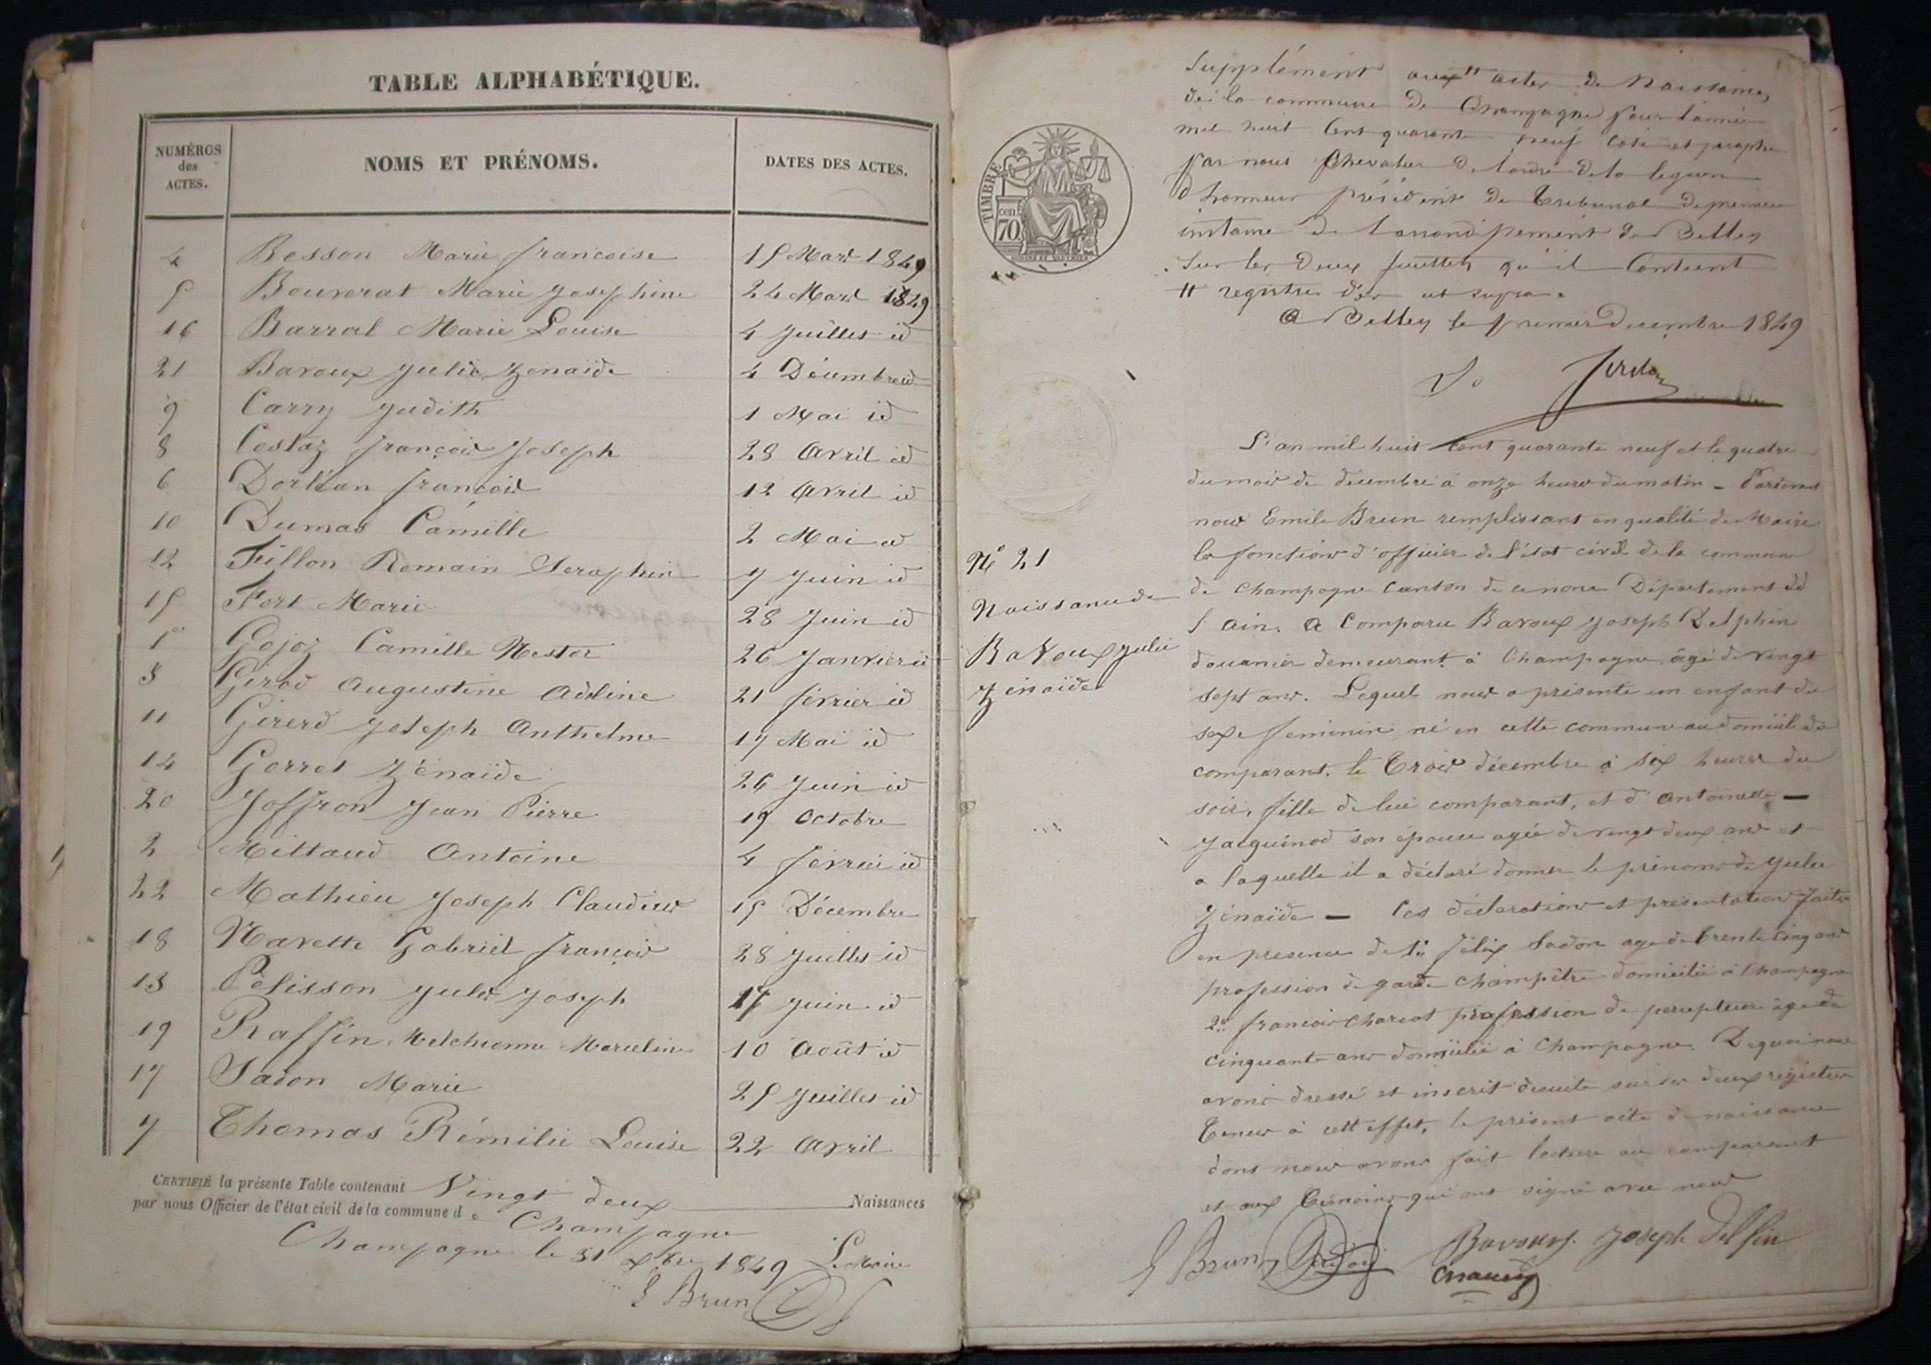 TABLE ALPHABÉTIQUE.
NUMÉROS des ACTES. NOMS ET PRÉNOMS. DATES DES ACTES.
4 Besson Marie francoise 15 Mars 1849
5 Bouverat Marie Josephine 24 Mars 1849
16 Barral Marie Louise 4 Juillet id
21 Bavoux Julie Zénaïde 4 Décembre id
9 Carry Judith 1 Mai id
8 Cestaz françois Joseph 28 Avril id
6 Dorléan françois 12 Avril id
10 Dumas Camille 2 Mai id
12 Fillon Romain Seraphin 7 Juin id
15 Fort Marie 28 Juin id
1er Gojoz Camille Nestor 26 Janvier id
3 Girod Augustine Adeline 21 février id
11 Girerd Joseph Anthelme 17 Mai id
14 Gorret Zénaïde 26 Juin id
20 Joffron Jean Pierre 19 Octobre
2 Millaud Antoine 4 février id
22 Mathieu Joseph Claudius 15 Décembre
18 Navette Gabriel françois 28 Juillet id
13 Pélisson Jules Joseph Juin id
19 Raffin Melchionne Marceline 10 Août id
17 Sadon Marie 25 Juillet id
7 Thomas Rémilie Louise 22 Avril
CERTIFIÉ la présente Table contenant Vingt deux Naissances
par nous Officier de l'état civil de la commune de Champagne
Champagne le 31 Xbre 1849 Le Maire
E Brun
TIMBRE
cen. 70
Supplément aux actes de Naissances
de la commune de Champagne pour l'année
mil huit Cent quarante neuf coté et paraphé
par nous Chevalier de l'ordre de la legion
d'honneur président du Tribunal de premiere
instance de l'arrondissement de Belley
Sur les deux feuillets qu'il Contient
registres d'es ut supra.
A Belley le premier decembre 1849
N° 21
Naissance de
Bavoux Julie
Zénaïde
L'an mil huit Cent quarante neuf et le quatre
du mois de décembre à onze heures du matin - Pardevant
nous Emile Brun remplissant en qualité de Maire
la fonction d'officier de l'état civil de la commune
de Champagne Canton de ce nom Département de
l'ain. A Comparu Bavoux Joseph Delphin
douanier demeurant à Champagne âgé de vingt
sept ans. Lequel nous a présenté un enfant du
sexe feminin né en cette commune au domicile du
comparant. le Trois décembre à six heures du
soir, fille de lui comparant, et d'Antoinette —
Jacquinod son épouse agée de vingt deux ans et
a laquelle il a déclaré donner le prénoms de Julie
Zénaïde — Ces déclaration et présentation faites
en presence de 1° félix Sadon age de trente cinq ans
profession de garde champêtre domicilié à Champagne
2° francois Charcot profession de percepteur âgé de
cinquante ans domicilié à Champagne. De quoi nous
avons dressé et inscrit desuite sur les deux registres
Tenus à cet effet, le présent acte de naissance
dont nous avons fait lecture au comparant
et aux Témoins qui ont signé avec nous
E Brun Sadon Bavoux Joseph Delfin